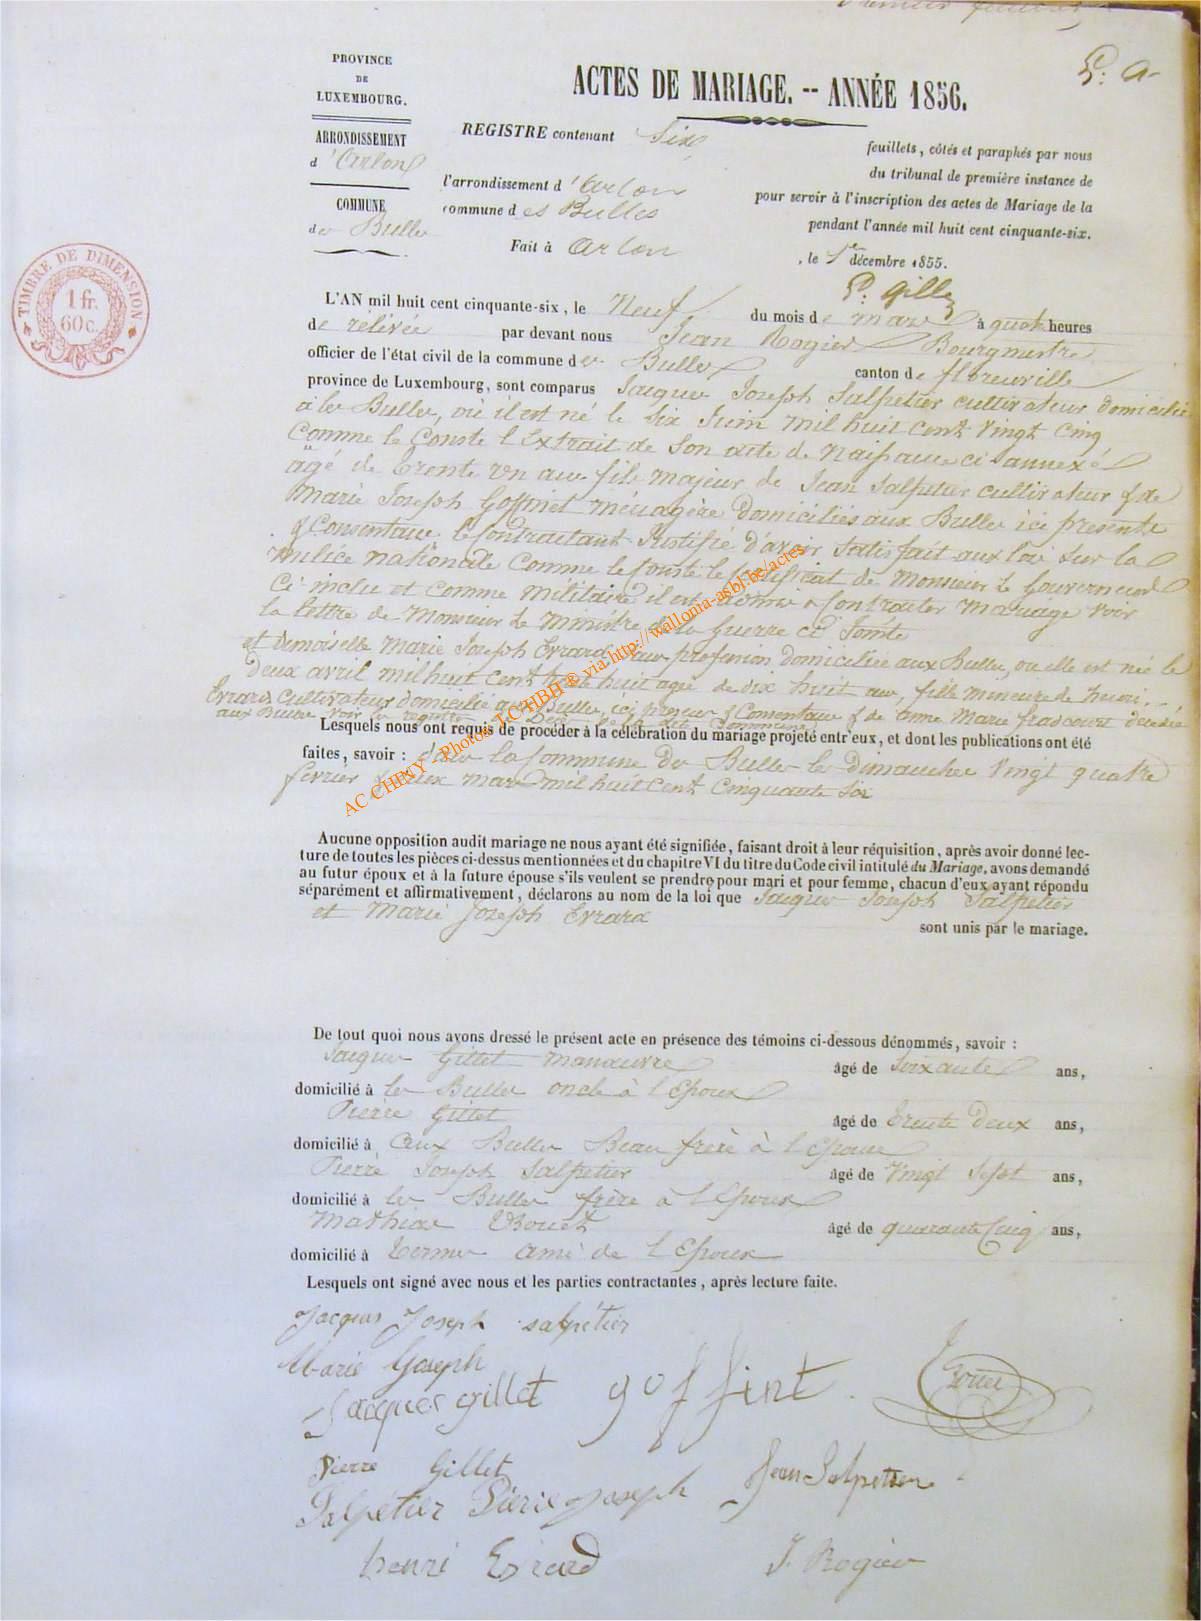 Premier feuillet
P. a
PROVINCE
DE
LUXEMBOURG.
ARRONDISSEMENT
d'Arlon
COMMUNE
des Bulles
ACTES DE MARIAGE. -- ANNÉE 1856.
REGISTRE contenant Six feuillets, côtés et paraphés par nous
du tribunal de première instance de
l'arrondissement d'Arlon pour servir à l'inscription des actes de Mariage de la
commune des Bulles pendant l'année mil huit cent cinquante-six.
Fait à Arlon, le 1er décembre 1855.
P. Gille
TIMBRE DE DIMENSION
1 fr.
60 c.
L'AN mil huit cent cinquante-six, le Neuf du mois de mars à quatre heures
de rélévée par devant nous Jean Rogier Bourgmestre
officier de l'état civil de la commune des Bulles canton de florenville
province de Luxembourg, sont comparus Jacques Joseph Salpetier cultivateur domicilié
à les Bulles, où il est né le six Juin mil huit cent vingt cinq
Comme le Conste l'Extrait de son acte de Naissance ci-annexé
âgé de trente un ans fils majeur de Jean Salpetier cultivateur & de
Marie Joseph Goffinet ménagère domiciliés aux Bulles ici présents
& Consentans le Contractant Justifié d'avoir satisfait aux lois sur la
milice nationale comme le Conste le Certificat de Monsieur le Gouverneur
Ci-inclus et comme militaire il est admis à Contracter Mariage voir
la lettre de Monsieur le Ministre de la Guerre ci Jointe
et demoiselle Marie Joseph Evrard sans profession domiciliée aux Bulles, ou elle est née le
deux avril mil huit cent trente huit agée de dix huit ans, fille mineure de henri
Evrard Cultivateur domicilié aux Bulles, ici présent & Consentant & de anne Marie fradcourt décédée
aux Bulles voir le registre
Lesquels nous ont requis de procéder à la célébration du mariage projeté entr'eux, et dont les publications ont été
faites, savoir : dans la Commune des Bulles les dimanches vingt quatre
fevrier & deux mars mil huit cent cinquante six
Aucune opposition audit mariage ne nous ayant été signifiée, faisant droit à leur réquisition, après avoir donné lec-
ture de toutes les pièces ci-dessus mentionnées et du chapitre VI du titre du Code civil intitulé du Mariage, avons demandé
au futur époux et à la future épouse s'ils veulent se prendre pour mari et pour femme, chacun d'eux ayant répondu
séparément et affirmativement, déclarons au nom de la loi que Jacques Joseph Salpetier
et Marie Joseph Evrard
sont unis par le mariage.
De tout quoi nous avons dressé le présent acte en présence des témoins ci-dessous dénommés, savoir :
Jacques Gillet manœuvre âgé de Soixante ans,
domicilié à les Bulles oncle à l'Epoux
Pierre Gillet âgé de trente deux ans,
domicilié à aux Bulles Beau frère à l'Epoux
Pierre Joseph Salpetier âgé de vingt sept ans,
domicilié à les Bulles frère à l'Epoux
Mathias Bouet âgé de quarante cinq ans,
domicilié à termes ami de l'Epoux
Lesquels ont signé avec nous et les parties contractantes, après lecture faite.
Jacques Joseph salpétier
Marie Joseph
Jacques gillet goffint
Pierre Gillet Jean Salpetier
Salpetier Pierre Joseph
henri Evrard J. Rogier
AC CHINY - Photos J.C. HBH ® via http://wallonia-asbl.be/actes